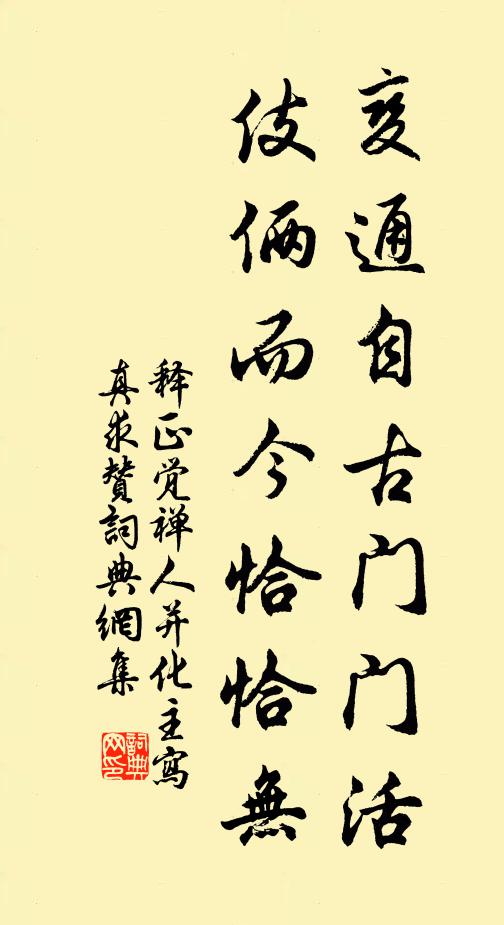 变通自古门门活
伎俩而今恰恰無
释正觉禅人并化主寫
真求赞詞典網集
詞典网印